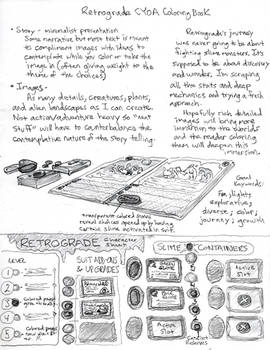 Retrograde CYOA Coloring Book
• Story - minimalist presentation
Some narrative but most text is meant
to compliment images with ideas to
contemplate while you color or take the
image in (often giving weight to the
theme of the choices)
• Images -
As many details, creatures, plants,
and alien landscapes as I can create.
Not action/adventure heavy so "neat
stuff" will have to counterbalance the
contemplative nature of the story telling.
Retrograde's journey
was never going to be about
fighting slime monsters. It's
supposed to be about discovery
and wonder. I'm scraping
all the stats and deep
mechanics and trying a fresh
approach.
Hopefully rich detailed
images will bring more
immersion to the worlds
and the reader coloring
them will deepen this
immersion.
Good
Keywords:
Fun, light,
explorative,
diverse, color,
journey, growth
transparent colored stones
reveal choices opened up by having
certain slime activated in suit.
RETROGRADE character sheet
LEVEL
1
2
3
4
5
SUIT ADD-ONS
& UPGRADES
SLIME CONTAINERS
Active
Slot
Active
Slot